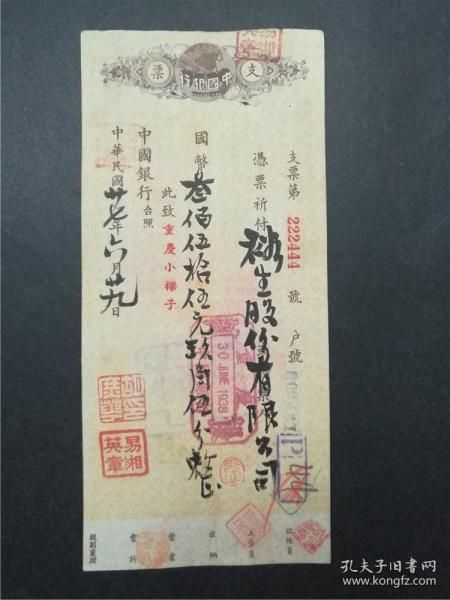 支票
中國銀行
支票第 222444 號 戶號
憑票祈付 裕生股份有限公司
國幣叁佰伍拾伍元玖角伍分整
此致重慶小樑子
中國銀行台照
中華民國廿七年六月廿九日
30 JUNE 1938
易湘英章
易湘英章
記賬員
主務員
出納
營業
會計
孔夫子旧书网
www.kongfz.com